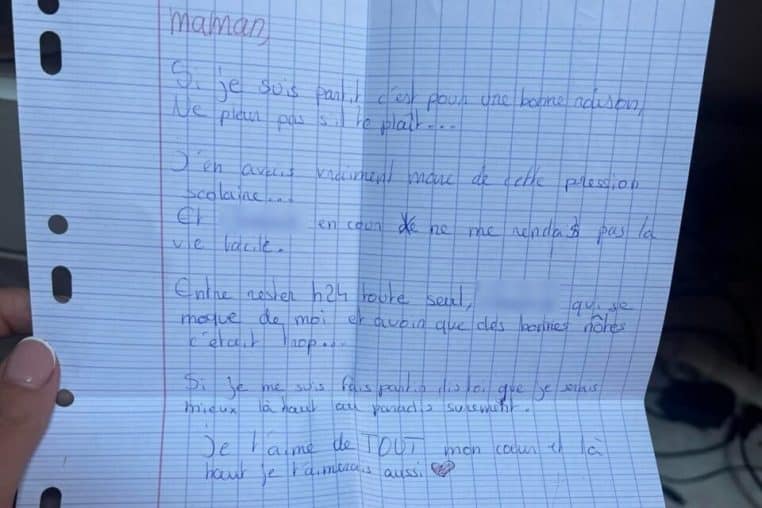 maman,
Si je suis partit c'est pour une bonne raison,
Ne pleur pas s'il te plaît...
J'en avais vraiment marre de cette pression
scolaire...
Et en cour ne me rendais pas la
vie facile.
Entre rester h24 toute seul, qui se
moque de moi et avoir que des bonnes nôtes
c'était trop...
Si je me suis fais partir dis toi que je serais
mieux là haut au paradis surement.
Je t'aime de TOUT mon cœur et là
haut je t'aimerais aussi